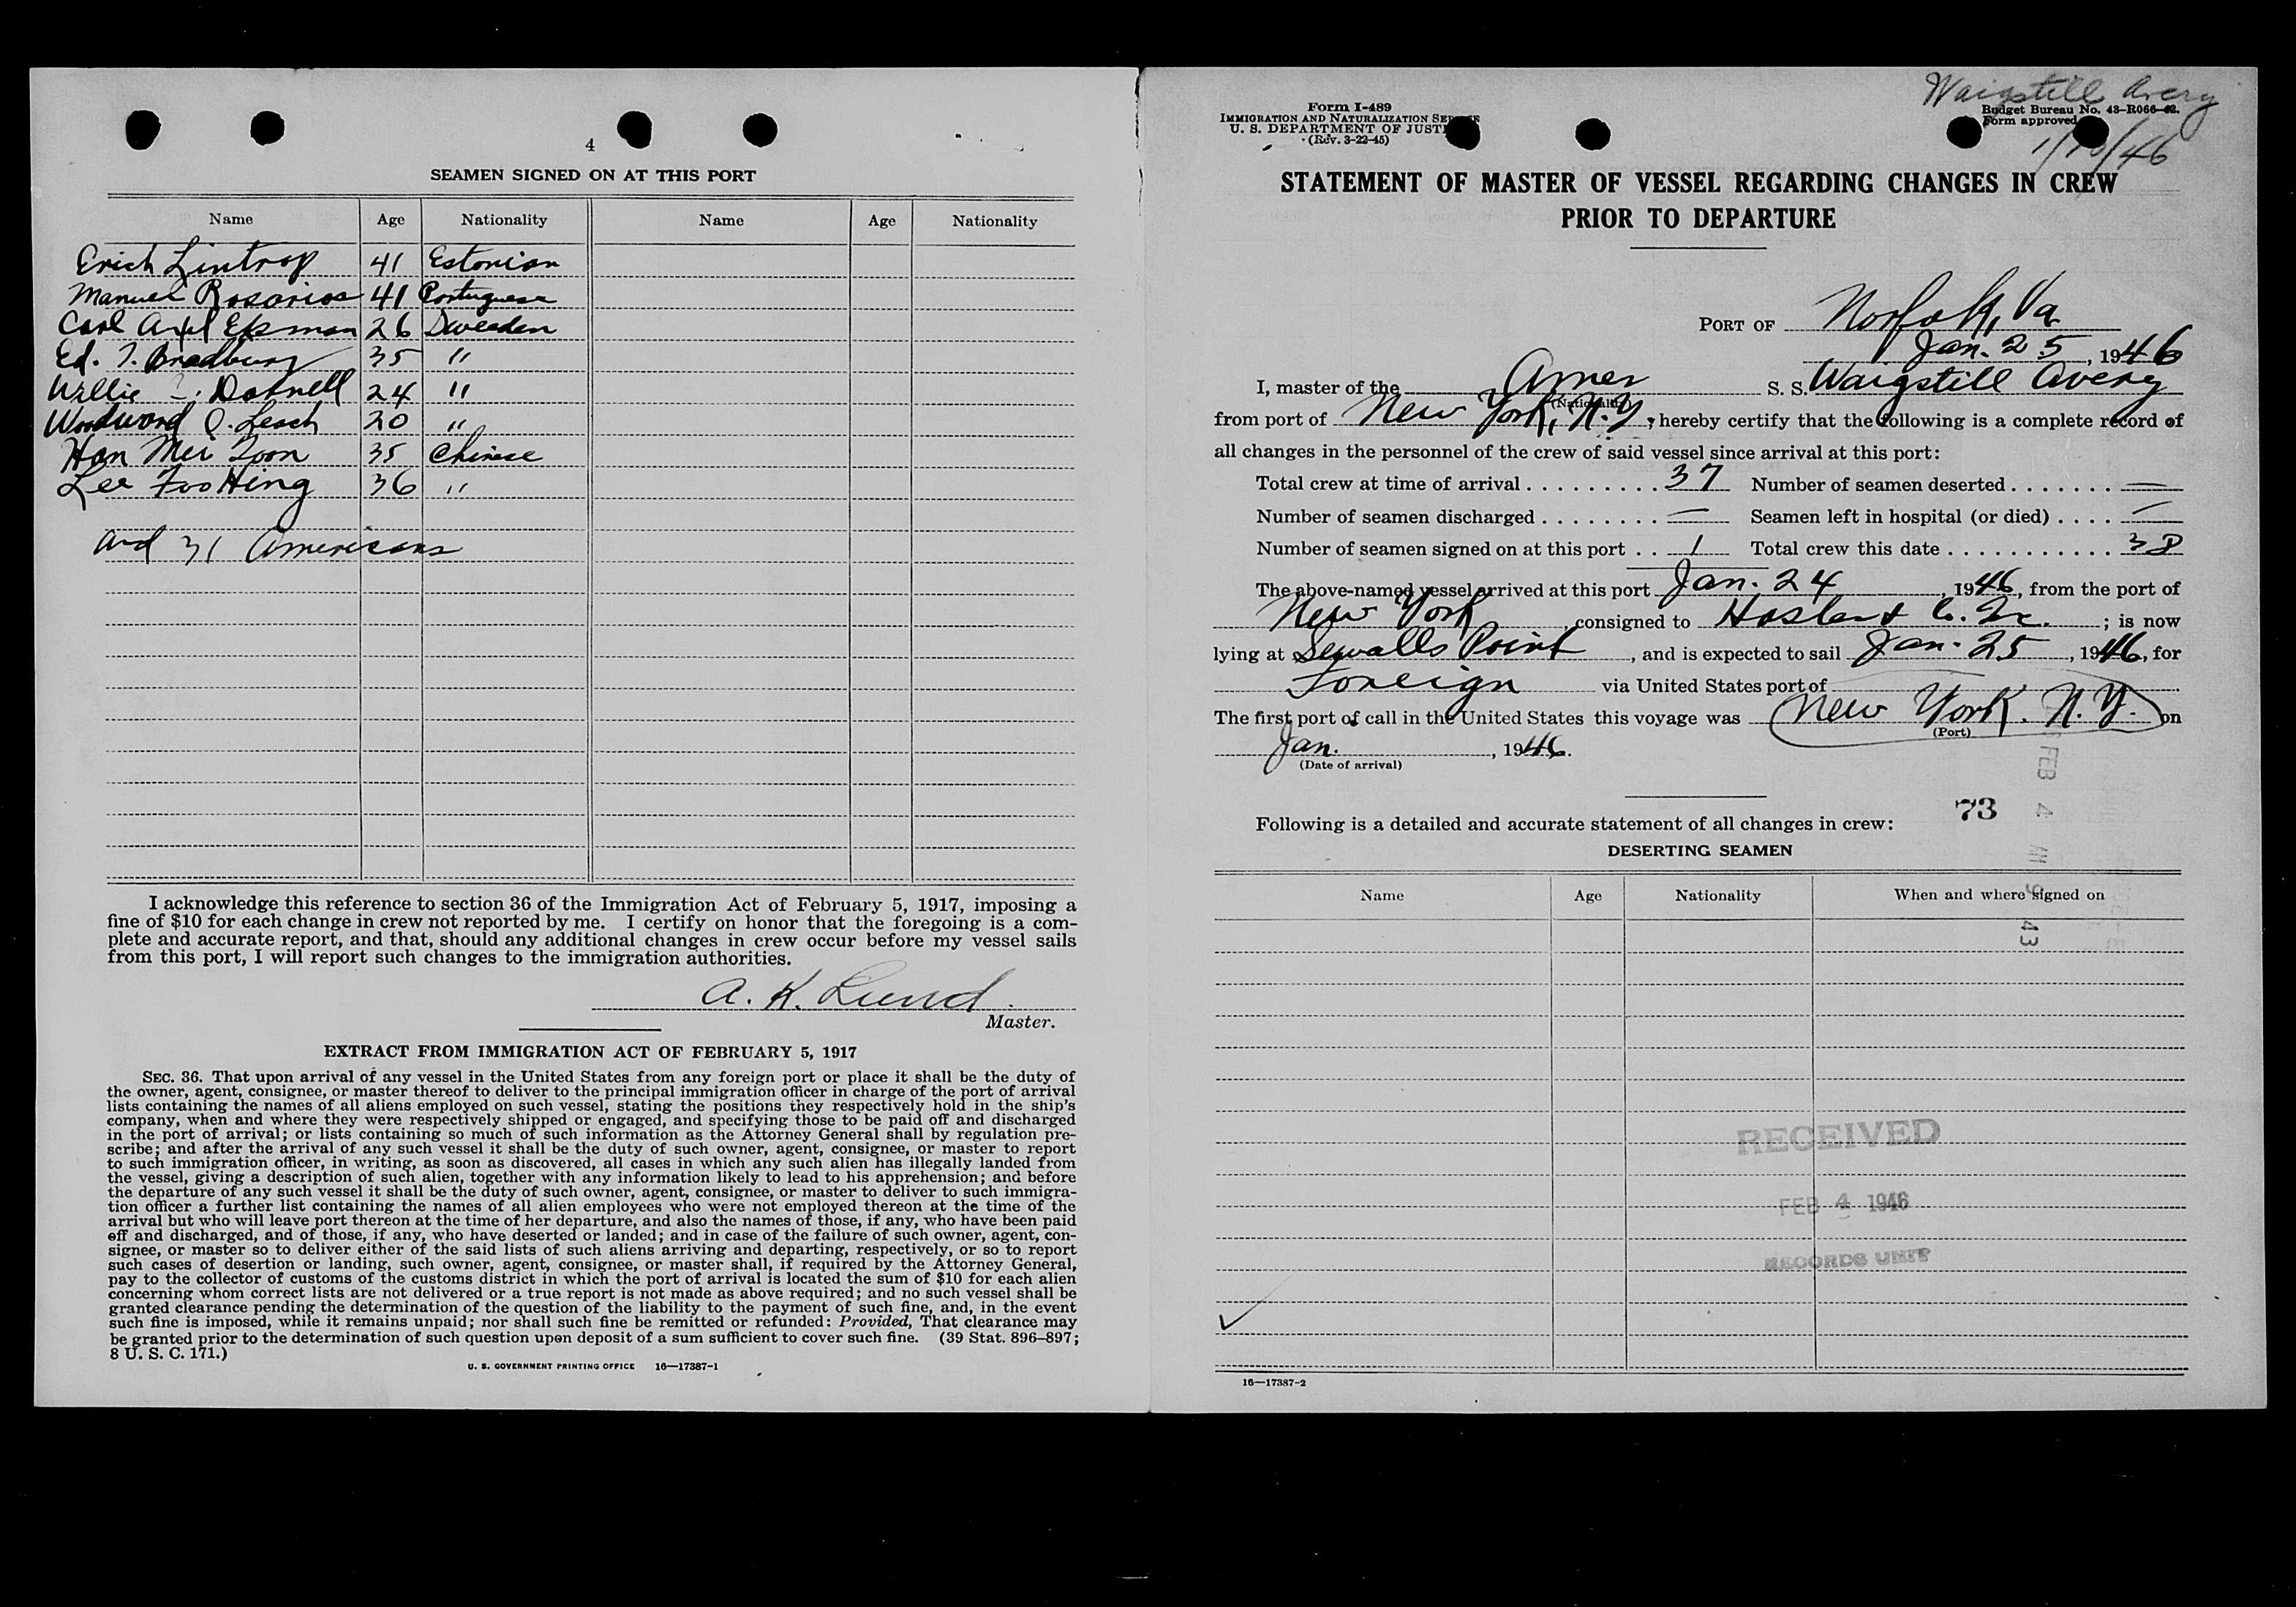 4
SEAMEN SIGNED ON AT THIS PORT
Name Age Nationality Name Age Nationality
Erich Lintrop 41 Estonian
Manuel Rosarios 41 Portuguese
Carl Axel Ekman 26 Sweaden
Ed. T. Bradbury 35 "
Willie Darnell 24 "
Woodward Q. Leach 20 "
Han Mei Toon 35 Chinese
Lee Foo Hing 36 "
and 31 Americans
I acknowledge this reference to section 36 of the Immigration Act of February 5, 1917, imposing a
fine of $10 for each change in crew not reported by me. I certify on honor that the foregoing is a com-
plete and accurate report, and that, should any additional changes in crew occur before my vessel sails
from this port, I will report such changes to the immigration authorities.
A. K. Lund.
Master.
EXTRACT FROM IMMIGRATION ACT OF FEBRUARY 5, 1917
SEC. 36. That upon arrival of any vessel in the United States from any foreign port or place it shall be the duty of
the owner, agent, consignee, or master thereof to deliver to the principal immigration officer in charge of the port of arrival
lists containing the names of all aliens employed on such vessel, stating the positions they respectively hold in the ship's
company, when and where they were respectively shipped or engaged, and specifying those to be paid off and discharged
in the port of arrival; or lists containing so much of such information as the Attorney General shall by regulation pre-
scribe; and after the arrival of any such vessel it shall be the duty of such owner, agent, consignee, or master to report
to such immigration officer, in writing, as soon as discovered, all cases in which any such alien has illegally landed from
the vessel, giving a description of such alien, together with any information likely to lead to his apprehension; and before
the departure of any such vessel it shall be the duty of such owner, agent, consignee, or master to deliver to such immigra-
tion officer a further list containing the names of all alien employees who were not employed thereon at the time of the
arrival but who will leave port thereon at the time of her departure, and also the names of those, if any, who have been paid
off and discharged, and of those, if any, who have deserted or landed; and in case of the failure of such owner, agent, con-
signee, or master so to deliver either of the said lists of such aliens arriving and departing, respectively, or so to report
such cases of desertion or landing, such owner, agent, consignee, or master shall, if required by the Attorney General,
pay to the collector of customs of the customs district in which the port of arrival is located the sum of $10 for each alien
concerning whom correct lists are not delivered or a true report is not made as above required; and no such vessel shall be
granted clearance pending the determination of the question of the liability to the payment of such fine, and, in the event
such fine is imposed, while it remains unpaid; nor shall such fine be remitted or refunded: Provided, That clearance may
be granted prior to the determination of such question upon deposit of a sum sufficient to cover such fine. (39 Stat. 896–897;
8 U. S. C. 171.)
U. S. GOVERNMENT PRINTING OFFICE 16—17387-1
Waigstill Avery
Form I-489
IMMIGRATION AND NATURALIZATION
U. S. DEPARTMENT OF
(Rev. 3-22-45)
Budget Bureau No. 43-R066-42.
Form approved
STATEMENT OF MASTER OF VESSEL REGARDING CHANGES IN CREW
PRIOR TO DEPARTURE
PORT OF Norfolk, Va
Jan. 25, 1946
I, master of the Amer S. S. Waigstill Avery
(Nationality)
from port of New York, N.Y., hereby certify that the following is a complete record of
all changes in the personnel of the crew of said vessel since arrival at this port:
Total crew at time of arrival . . . . . . . . . 37 Number of seamen deserted . . . . . . . —
Number of seamen discharged . . . . . . . . — Seamen left in hospital (or died) . . . . —
Number of seamen signed on at this port . . 1 Total crew this date . . . . . . . . . . . . 38
The above-named vessel arrived at this port Jan. 24, 1946, from the port of
New York, consigned to Hasler & Co. Inc.; is now
lying at Sewalls Point, and is expected to sail Jan. 25, 1946, for
Foreign via United States port of
The first port of call in the United States this voyage was New York. N.Y. on
(Port)
Jan., 1946.
(Date of arrival)
FEB 4 AM 9 43
73
Following is a detailed and accurate statement of all changes in crew:
DESERTING SEAMEN
Name Age Nationality When and where signed on
RECEIVED
FEB 4 1946
RECORDS UNIT
16—17387-2